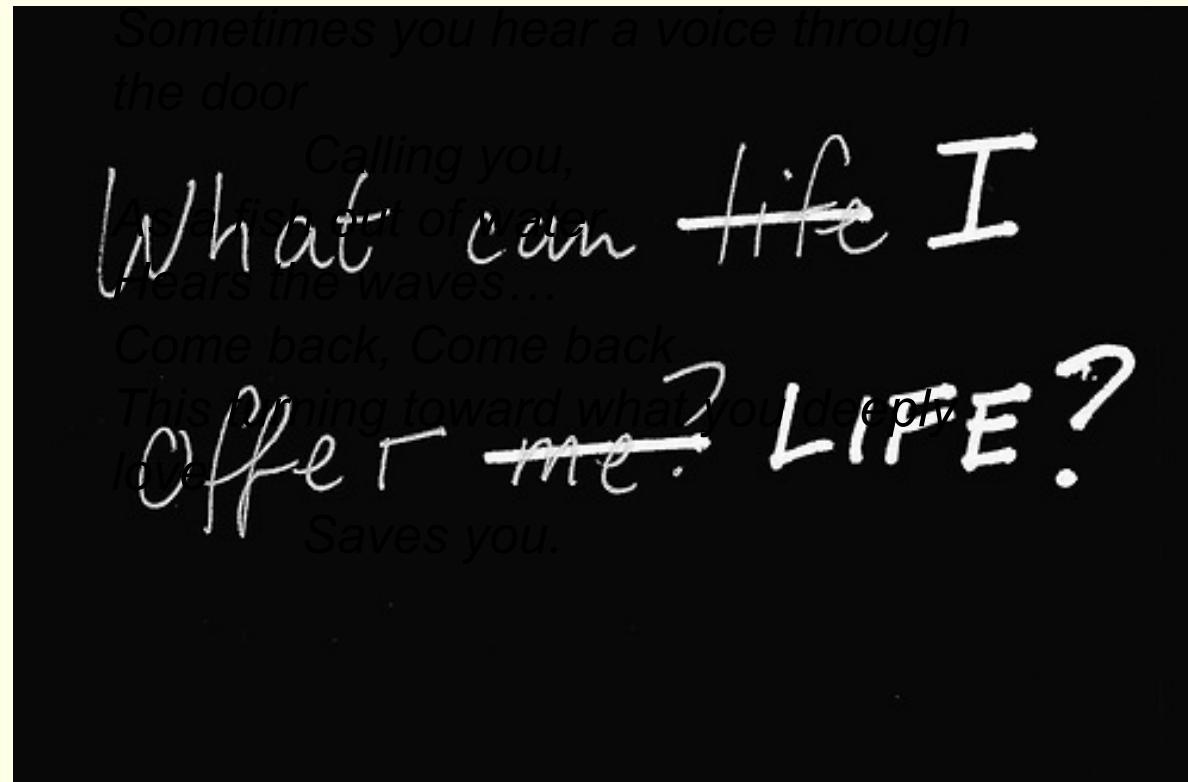 Sometimes you hear a voice through
the door
Calling you,
As a fish out of water
Hears the waves…
Come back, Come back
This turning toward what you deeply
love
Saves you.
What can life I
offer me? LIFE?